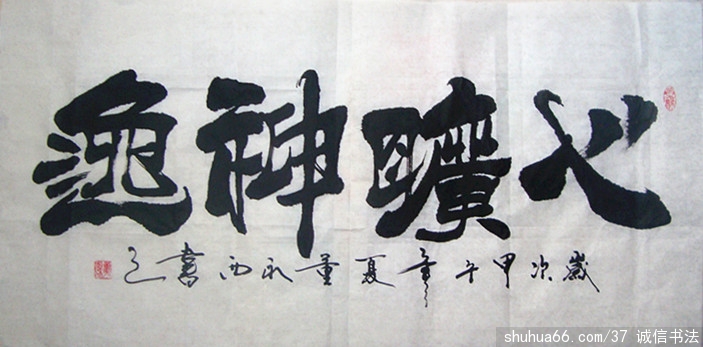 心曠神逸
歲次甲午年夏董永西書之
shuhua66.com/37 诚信书法